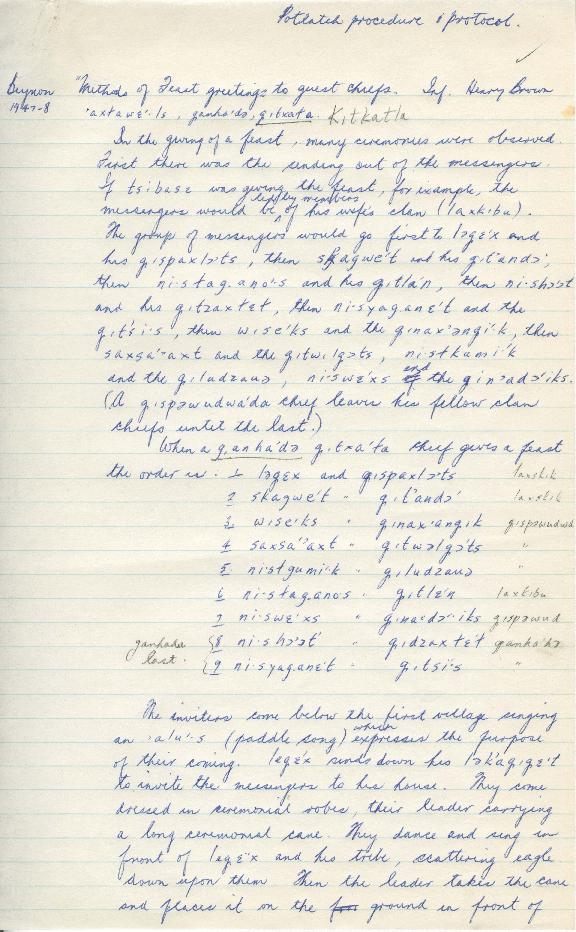 Potlatch procedure & protocol.
Beynon 1947-8
"Methods of Feast greetings to guest chiefs. Inf. Henry Brown
'axtawɛ·ls, ganha·də, gitxała. Kitkatla
In the giving of a feast, many ceremonies were observed.
First there was the sending out of the messengers.
If tsibasɛ was giving the feast, for example, the
messengers would be, of his wife's clan (laxkibu).
The group of messengers would go first to ləgɛ́x and
his gispaxlɔ́ts, then skagwɛ́t and his git'andɔ́,
then ni·stag.ano·s and his gitlá·n, then ni·shɔ́t
and his gitzaxtɛt, then ni·syaganɛ́t and the
gitsi·s, then wisɛ́ks and the ginax'angi·k, then
saxsa·'axt and the gitwilgɔ́ts, ni·stkumi·k
and the giludzauə, ni·swɛ́xs and the ginadɔ́iks.
(A gispəwudwa·da chief leaves his fellow clan
chiefs until the last.)
When a ganha·də gitxa·ła chief gives a feast
the order is. 1 ləgɛx and gispaxlɔ́ts laxskik
2 skagwɛ́t " git'andɔ́ laxskik
3 wisɛ·ks " ginax'angik gispəwudwa
4 saxsa·'axt " gitwəlgɔ́ts "
5 ni·stgumi·k " giludzauə "
6 ni·staganos " gitlɛ́n laxkibu
7 ni·swɛ́xs " ginadɔ́iks gispəwud
ganhada last. 8 ni·shɔ́t " gidzaxtɛt ganha·da
9 ni·syaganɛ́t " gitsi·s "
The inviters come below the first village singing
an 'alu·s (paddle song) which expresses the purpose
of their coming. legɛ́x sends down his ləkágigɛt
to invite the messengers to his house. They come
dressed in ceremonial robes, their leader carrying
a long ceremonial cane. They dance and sing in
front of legɛ́x and his tribe, scattering eagle
down upon them Then the leader takes the cane
and places it on the ground in front of